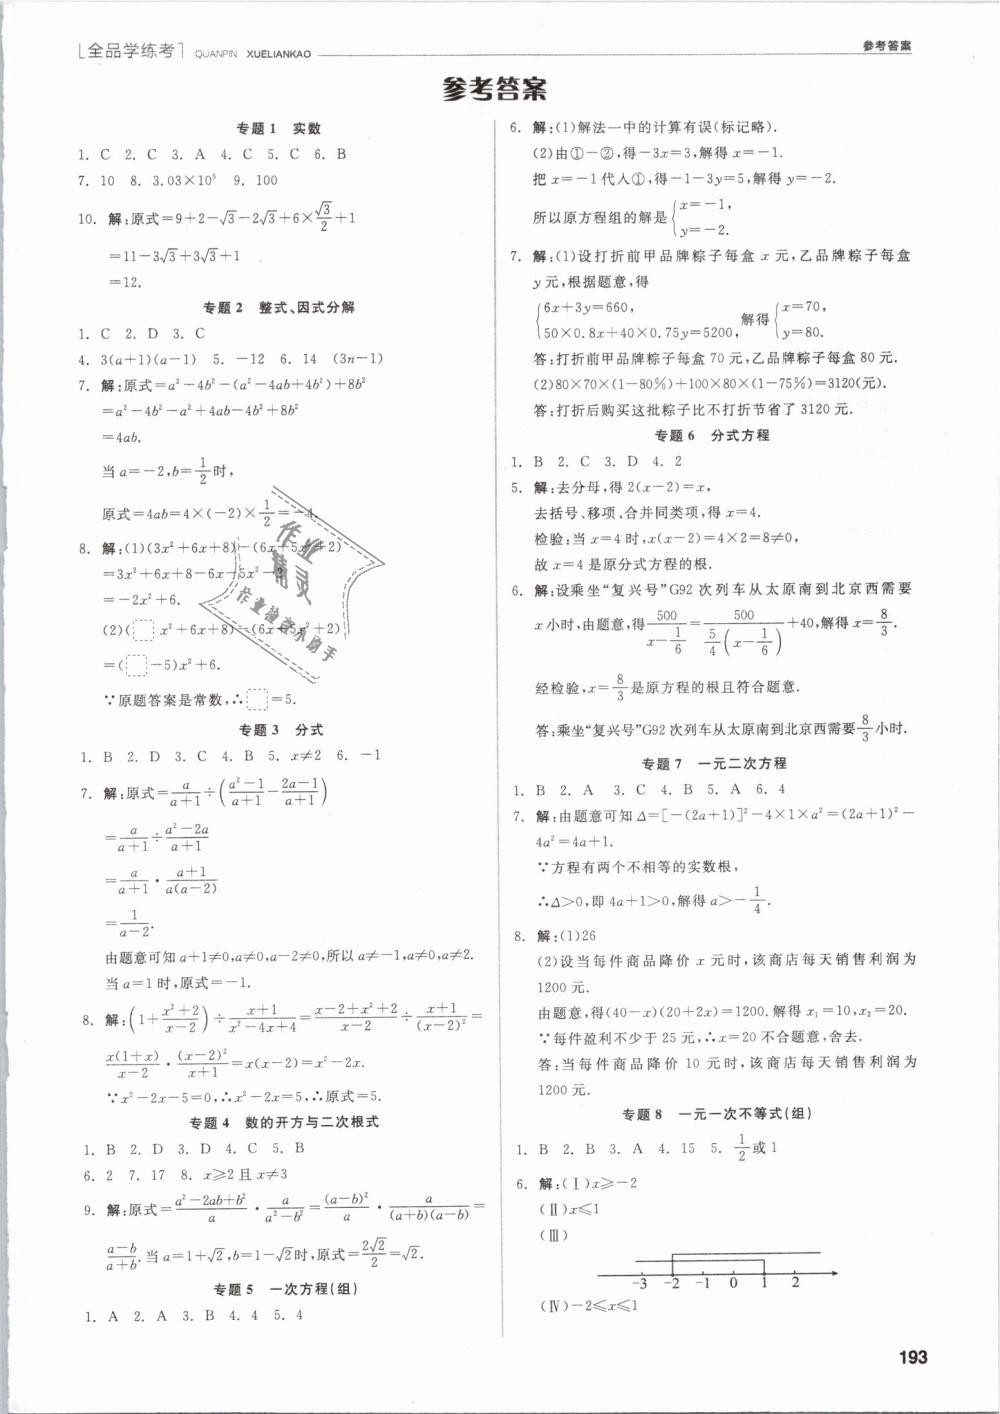 全品学练考 QUANPIN XUELIANKAO
参考答案
参考答案
专题1 实数
1. C 2. C 3. A 4. C 5. C 6. B
7. 10 8. 3.03×10⁵ 9. 100
10. 解:原式=9+2-√3-2√3+6×√3/2+1
=11-3√3+3√3+1
=12.
专题2 整式、因式分解
1. C 2. D 3. C
4. 3(a+1)(a-1) 5. -12 6. 14 (3n-1)
7. 解:原式=a²-4b²-(a²-4ab+4b²)+8b²
=a²-4b²-a²+4ab-4b²+8b²
=4ab.
当a=-2,b=1/2时,
原式=4ab=4×(-2)×1/2=-4.
8. 解:(1)(3x²+6x+8)-(6x+5x²+2)
=3x²+6x+8-6x-5x²-2
=-2x²+6.
(2)(□x²+6x+8)-(6x+5x²+2)
=(□-5)x²+6.
∵原题答案是常数,∴□=5.
专题3 分式
1. B 2. D 3. C 4. B 5. x≠2 6. -1
7. 解:原式=a/(a+1)÷((a²-1)/(a+1)-(2a-1)/(a+1))
=a/(a+1)÷(a²-2a)/(a+1)
=a/(a+1)·(a+1)/(a(a-2))
=1/(a-2).
由题意可知a+1≠0,a≠0,a-2≠0,所以a≠-1,a≠0,a≠2.
当a=1时,原式=-1.
8. 解:(1+(x²+2)/(x-2))÷(x+1)/(x²-4x+4)=(x-2+x²+2)/(x-2)÷(x+1)/(x-2)²=
x(1+x)/(x-2)·(x-2)²/(x+1)=x(x-2)=x²-2x.
∵x²-2x-5=0,∴x²-2x=5,∴原式=5.
专题4 数的开方与二次根式
1. B 2. D 3. D 4. C 5. B
6. 2 7. 17 8. x≥2且x≠3
9. 解:原式=(a²-2ab+b²)/a·a/(a²-b²)=(a-b)²/a·a/((a+b)(a-b))=
(a-b)/(a+b).当a=1+√2,b=1-√2时,原式=2√2/2=√2.
专题5 一次方程(组)
1. A 2. A 3. B 4. 4 5. 4
6. 解:(1)解法一中的计算有误(标记略).
(2)由①-②,得-3x=3,解得x=-1.
把x=-1代人①,得-1-3y=5,解得y=-2.
所以原方程组的解是{x=-1,
y=-2.
7. 解:(1)设打折前甲品牌粽子每盒x元,乙品牌粽子每盒
y元,根据题意,得
{6x+3y=660, 50×0.8x+40×0.75y=5200, 解得{x=70, y=80.
答:打折前甲品牌粽子每盒70元,乙品牌粽子每盒80元.
(2)80×70×(1-80%)+100×80×(1-75%)=3120(元).
答:打折后购买这批粽子比不打折节省了3120元.
专题6 分式方程
1. B 2. C 3. D 4. 2
5. 解:去分母,得2(x-2)=x,
去括号、移项、合并同类项,得x=4.
检验:当x=4时,x(x-2)=4×2=8≠0,
故x=4是原分式方程的根.
6. 解:设乘坐“复兴号”G92次列车从太原南到北京西需要
x小时,由题意,得500/(x-1/6)=500/(5/4(x-1/6))+40,解得x=8/3.
经检验,x=8/3是原方程的根且符合题意.
答:乘坐“复兴号”G92次列车从太原南到北京西需要8/3小时.
专题7 一元二次方程
1. B 2. A 3. C 4. B 5. A 6. 4
7. 解:由题意可知Δ=[-(2a+1)]²-4×1×a²=(2a+1)²-
4a²=4a+1.
∵方程有两个不相等的实数根,
∴Δ>0,即4a+1>0,解得a>-1/4.
8. 解:(1)26
(2)设当每件商品降价x元时,该商店每天销售利润为
1200元.
由题意,得(40-x)(20+2x)=1200.解得x₁=10,x₂=20.
∵每件盈利不少于25元,∴x=20不合题意,舍去.
答:当每件商品降价10元时,该商店每天销售利润为
1200元.
专题8 一元一次不等式(组)
1. B 2. B 3. A 4. 15 5. 1/2或1
6. 解:(Ⅰ)x≥-2
(Ⅱ)x≤1
(Ⅲ)
-3 -2 -1 0 1 2
(Ⅳ)-2≤x≤1
193
作业
精灵
作业检查小助手